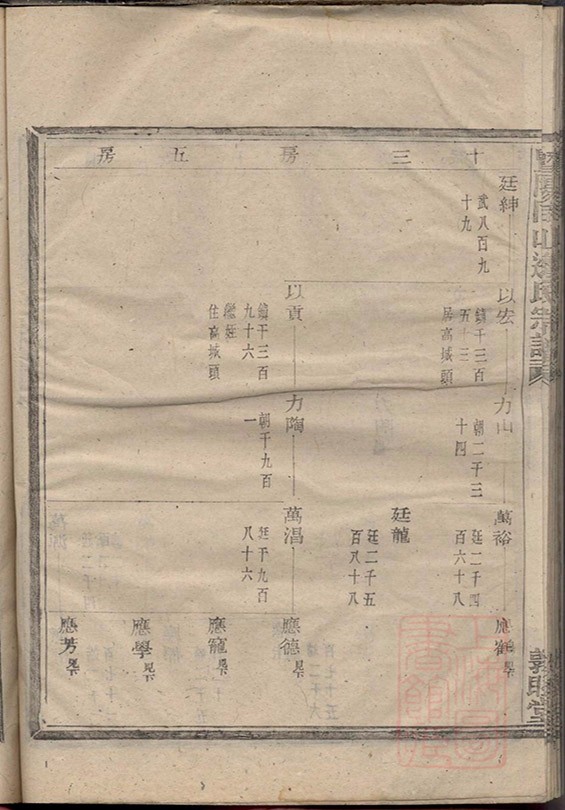 十三房五房
廷紳
武八百九
十九
以宏
鎮千三百
五十三
居高城頭
力山
朝二千三
十四
萬裕
廷二千四
百六十八
應鶴 見下
廷龍
廷二千五
百八十八
以貢
鎮千三百
九十六
繼廷
住高城頭
力陶
朝千九百
一
萬淐
廷千九百
八十六
應德 見下
應寵 見下
應學 見下
應芳 見下
山邊氏宗譜
敦睦堂